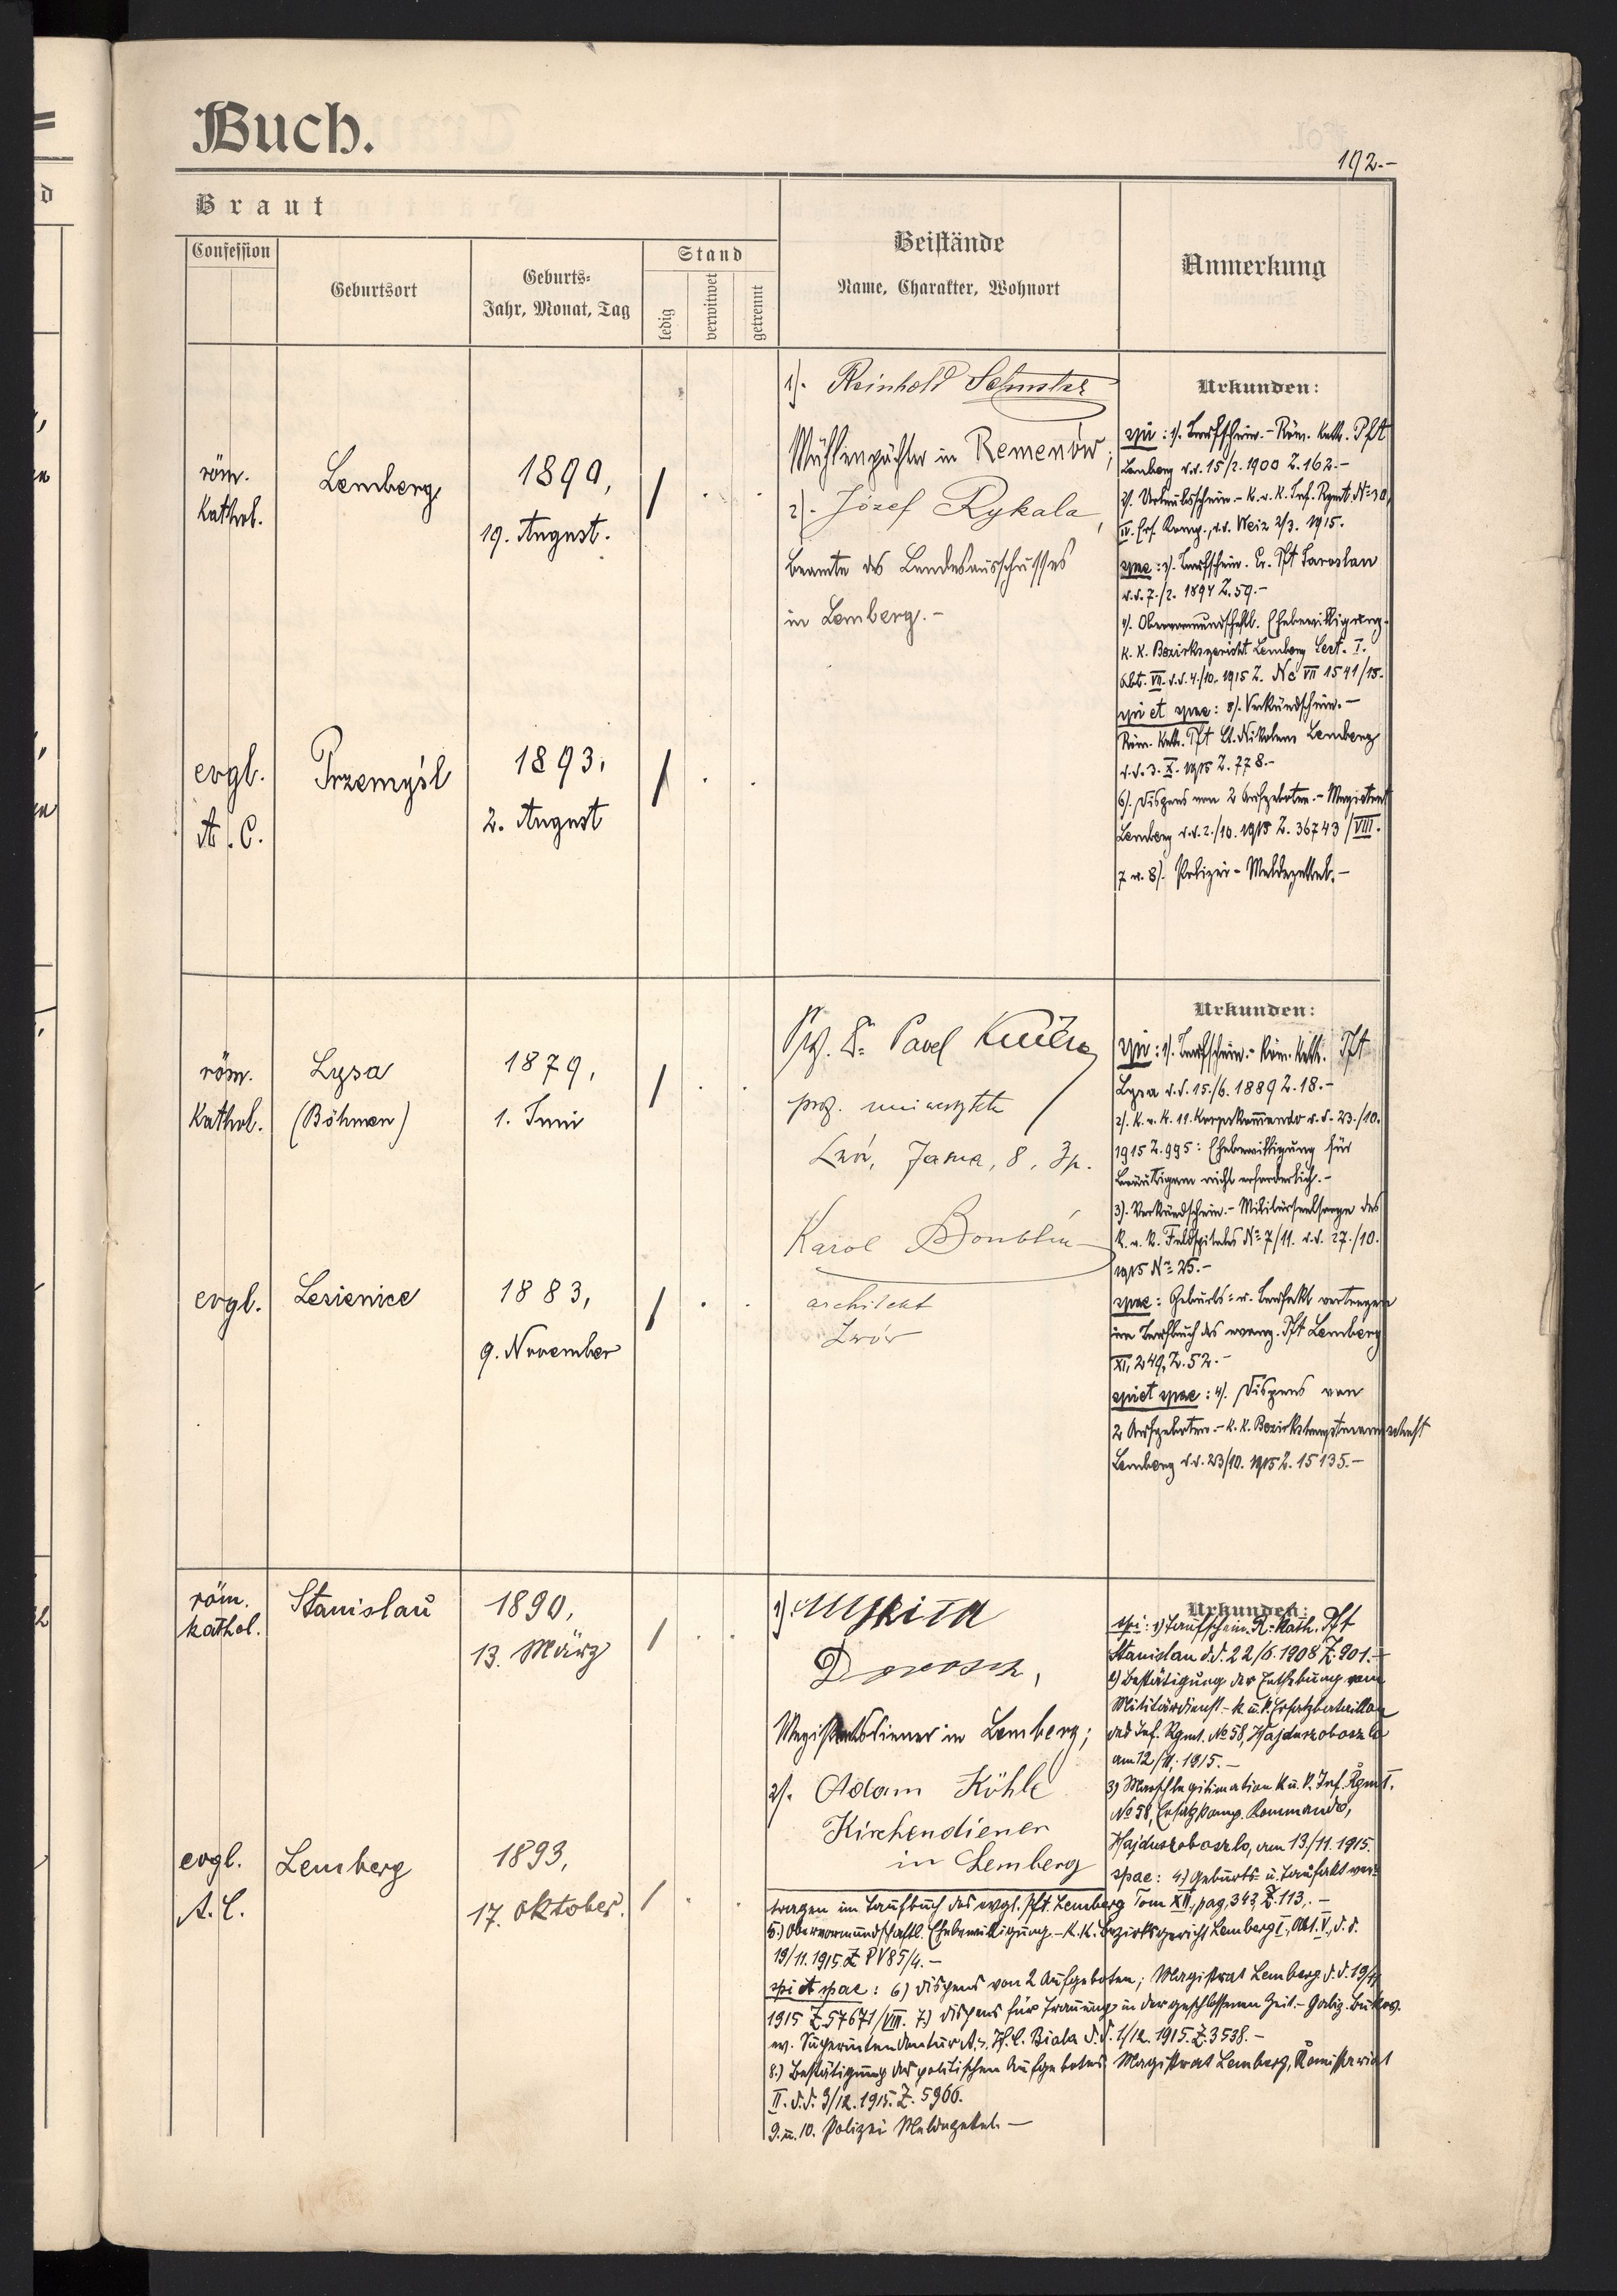 Buch.
192.-
Braut
Confession
Geburtsort
Geburts-
Jahr, Monat, Tag
Stand
ledig
verwitwet
getrennt
Beistände
Name, Charakter, Wohnort
Anmerkung
röm.
kathol.
Lemberg
1890,
19. August.
1). Reinhold Schuster
Mühlenpächter in Remenów;
2). Józef Rykala,
Beamte des Landesausschusses
in Lemberg.-
evgl.
A. C.
Przemyśl
1893.
2. August
Urkunden:
spi: 1). Taufschein.- Röm. Kath. Pft
Lemberg d.d. 15/2. 1900 Z. 162.-
2). Urlaubsschein.- K.u.K. Inf. Rgmt. No 30,
IV. Ers. Komp., d.d. Weiz 2/3. 1915.
spae: 3). Taufschein. Ev. Pft Jaroslau
d.d. 7./2. 1894 Z. 59.-
4). Obervormundschaftl. Ehebewilligung.
K.K. Bezirksgericht Lemberg Sect. I.
Abt. VII. d.d. 4./10. 1915 Z. Nc VII 1541/15.-
spi et spae: 5). Verkündschein.-
Röm. Kath. Pft St. Nikolaus Lemberg
d.d. 3. X. 1915 Z. 778.-
6). Dispens von 2 Aufgeboten.- Magistrat
Lemberg d.d. 2./10. 1915 Z. 36743/VIII.
7 u. 8). Polizei-Meldezettel.-
röm.
kathol.
Lysa
(Böhmen)
1879,
1. Juni
Dr. Pavel
Lwów,
8, Ip.
Karol
architekt
Lwów
evgl.
Lesienice
1883,
9. November
Urkunden:
spi: 1). Taufschein.- Röm. Kath. Pft
Lysa d.d. 15./6. 1889 Z. 18.-
2). K.u.K. 11. Korpskommando d.d. 23./10.
1915 Z. 995: Ehebewilligung für
Bräutigam nicht erforderlich.-
3). Verkündschein.- Militärseelsorge des
K.u.K. Feldspitales No 7/11. d.d. 27./10.
1915 No 25.-
spae: Geburts- u. Taufakt vertragen
im Taufbuch des evang. Pft Lemberg
XI, 249, Z. 52.-
spi et spae: 4). Dispens von
2 Aufgeboten.- K.K. Bezirkshauptmannschaft
Lemberg d.d. 23/10. 1915 Z. 15135.-
röm.
kathol.
Stanislau
1890,
13. März
1). Mykita
Dorosch,
Magistratsdiener in Lemberg;
2). Adam Köhle
Kirchendiener
in Lemberg
evgl.
A.C.
Lemberg
1893,
17. Oktober.
Urkunden:
spi: 1) Taufschein R.-Kath. Pft
Stanislau d.d. 22/6. 1908 Z. 901.-
2) Bestätigung der Enthebung vom
Militärdienst - k.u.k. Ersatzbataillon
des Inf. Rgmt. No 58, Hajduszoboszlo
am 12/11. 1915.-
3) Marschlegitimation k.u.k. Inf. Rgmt.
No 58, Ersatzkomp. Kommando,
Hajduszoboszlo, am 13./11. 1915.
spae: 4) Geburts- u. Taufakt ver-
tragen im Taufbuch des evgl. Pft. Lemberg Tom XII, pag. 343, Z. 113.-
5.) Obervormundschaftl. Ehebewilligung.- K.K. Bezirksgericht Lemberg I., Abt. V., d.d.
19/11. 1915 Z. P V 85/4.-
spi et spae: 6) Dispens von 2 Aufgeboten; Magistrat Lemberg d.d. 19/11
1915 Z. 57671/VIII. 7) Dispens für Trauung in der geschlossenen Zeit.- Galiz. Bukow.
ev. Superintendentur A. u. H.C. Biala d.d. 1/12. 1915. Z. 3538.-
8.) Bestätigung des politischen Aufgebotes Magistrat Lemberg, Komissariat
II. d.d. 9/12. 1915. Z. 5966.
9. u. 10. Polizei Meldezettel.-